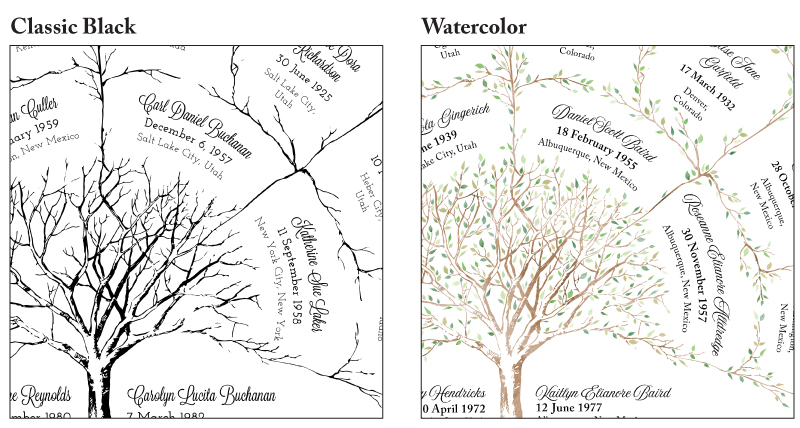 Classic Black
Utah
Dora
Richardson
30 June 1925
Salt Lake City,
Utah
Culler
1959
New Mexico
Carl Daniel Buchanan
December 6, 1957
Salt Lake City, Utah
10
Heber City,
Utah
Katherine Sue Lakes
11 September 1958
New York City, New York
Reynolds
1980
Carolyn Lucita Buchanan
7 March 1982
Watercolor
Utah
Colorado
Jane
Garfield
17 March 1932
Denver,
Colorado
Gingerich
1939
Lake City, Utah
Daniel Scott Baird
18 February 1955
Albuquerque, New Mexico
28 October
Albuquerque,
New Mexico
Roseanne Eleanore Alldredge
30 November 1957
Albuquerque, New Mexico
New
Hendricks
0 April 1972
Kaitlyn Elianore Baird
12 June 1977